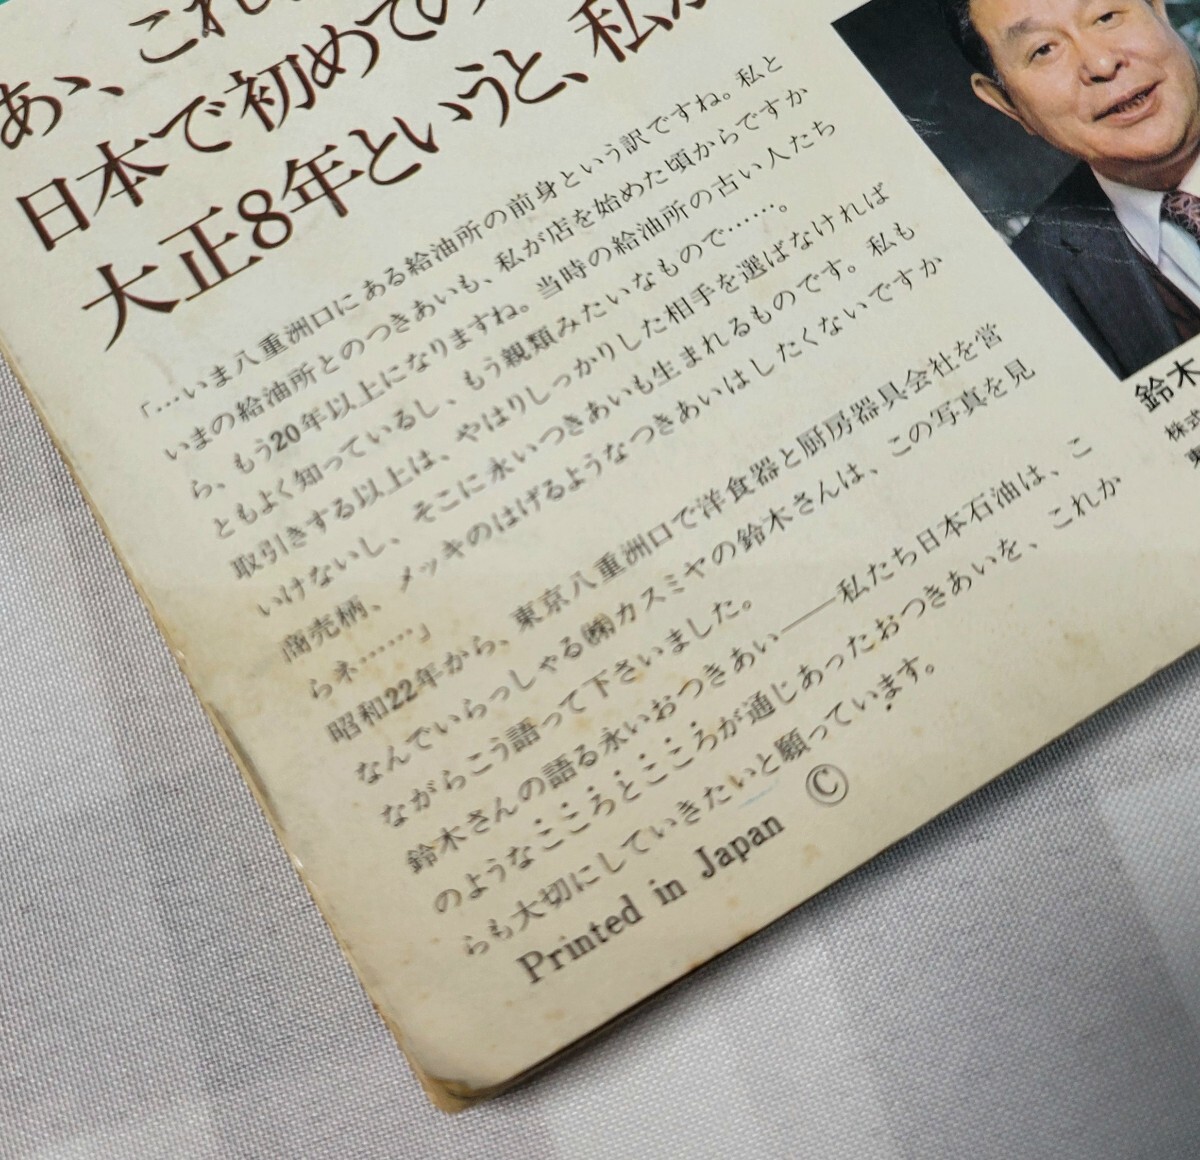 あゝ、これ
日本で初めての
大正8年というと、私が
「…いま八重洲口にある給油所の前身という訳ですね。私と
いまの給油所とのつきあいも、私が店を始めた頃からですか
ら、もう20年以上になりますね。当時の給油所の古い人たち
ともよく知っているし、もう親類みたいなもので……。
取引きする以上は、やはりしっかりした相手を選ばなければ
いけないし、そこに永いつきあいも生まれるものです。私も
商売柄、メッキのはげるようなつきあいはしたくないですか
らネ……」
昭和22年から、東京八重洲口で洋食器と厨房器具会社を営
なんでいらっしゃる㈱カスミヤの鈴木さんは、この写真を見
ながらこう語って下さいました。
鈴木さんの語る永いおつきあい――私たち日本石油は、こ
のようなこころとこころが通じあったおつきあいを、これか
らも大切にしていきたいと願っています。
Printed in Japan ©
鈴木
株式
東